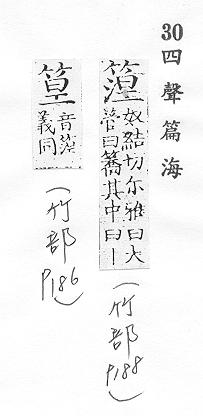 30 四聲篇海
篞 奴結切尔雅曰大
管曰簥其中曰丨
(竹部 P188)
音篞
義同
(竹部 P186)